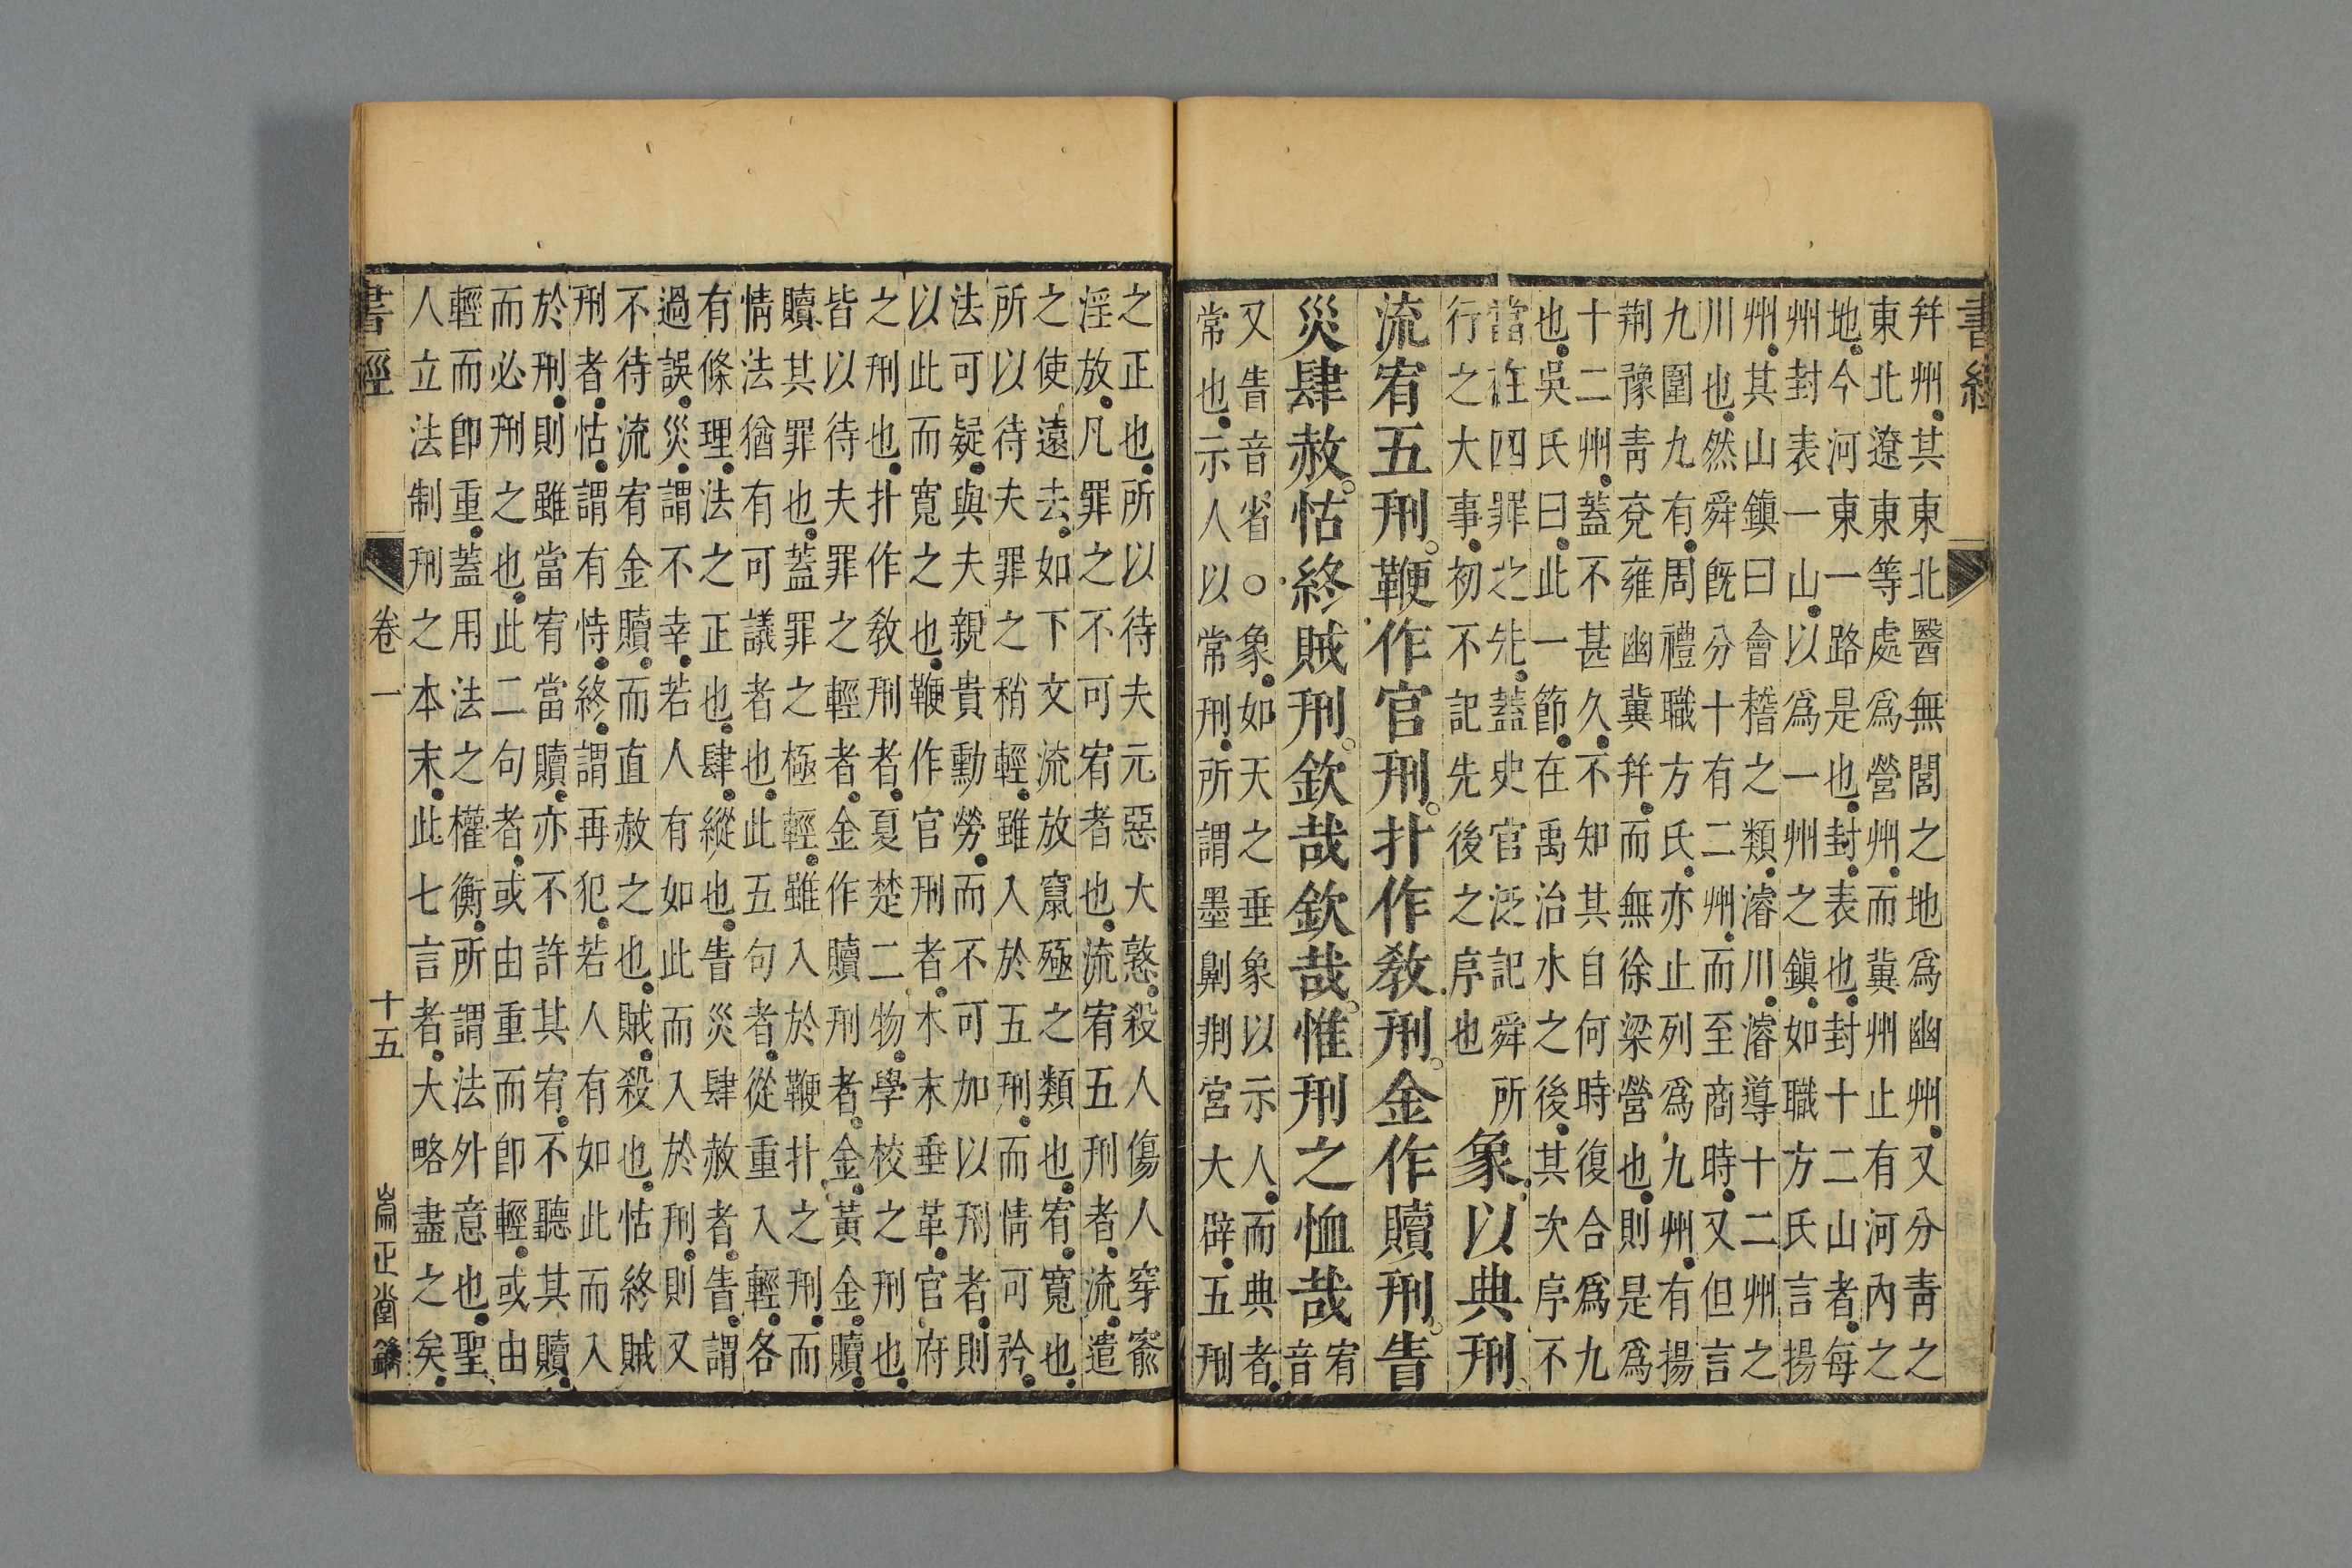 書經
幷州其東北醫無閭之地爲幽州又分靑之
東北遼東等處爲營州而冀州止有河內之
地今河東一路是也封表也封十二山者每
州封表一山以爲一州之鎭如職方氏言揚
州其山鎭曰會稽之類濬川濬導十二州之
川也然舜旣分十有二州而至商時又但言
九圍九有周禮職方氏亦止列爲九州有揚
荆豫靑兗雍幽冀幷而無徐梁營也則是爲
十二州蓋不甚久不知其自何時復合爲九
也吳氏曰此一節在禹治水之後其次序不
當在四罪之先蓋史官泛記舜所
行之大事初不記先後之序也
象以典刑
流宥五刑鞭作官刑扑作教刑金作贖刑眚
災肆赦怙終賊刑欽哉欽哉惟刑之恤哉
宥
音
又眚音省○象如天之垂象以示人而典者
常也示人以常刑所謂墨劓剕宮大辟五刑
之正也所以待夫元惡大憝殺人傷人穿窬
淫放凡罪之不可宥者也流宥五刑者流遣
之使遠去如下文流放竄殛之類也宥寬也
所以待夫罪之稍輕雖入於五刑而情可矜
法可疑與夫親貴勳勞而不可加以刑者則
以此而寬之也鞭作官刑者木末垂革官府
之刑也扑作教刑者夏楚二物學校之刑也
皆以待夫罪之輕者金作贖刑者金黃金贖
贖其罪也蓋罪之極輕雖入於鞭扑之刑而
情法猶有可議者也此五句者從重入輕各
有條理法之正也肆縱也眚災肆赦者眚謂
過誤災謂不幸若人有如此而入於刑則又
不待流宥金贖而直赦之也賊殺也怙終賊
刑者怙謂有恃終謂再犯若人有如此而入
於刑則雖當宥當贖亦不許其宥不聽其贖
而必刑之也此二句者或由重而卽輕或由
輕而卽重蓋用法之權衡所謂法外意也聖
人立法制刑之本末此七言者大略盡之矣
書經 卷一 十五 崙正堂鐫